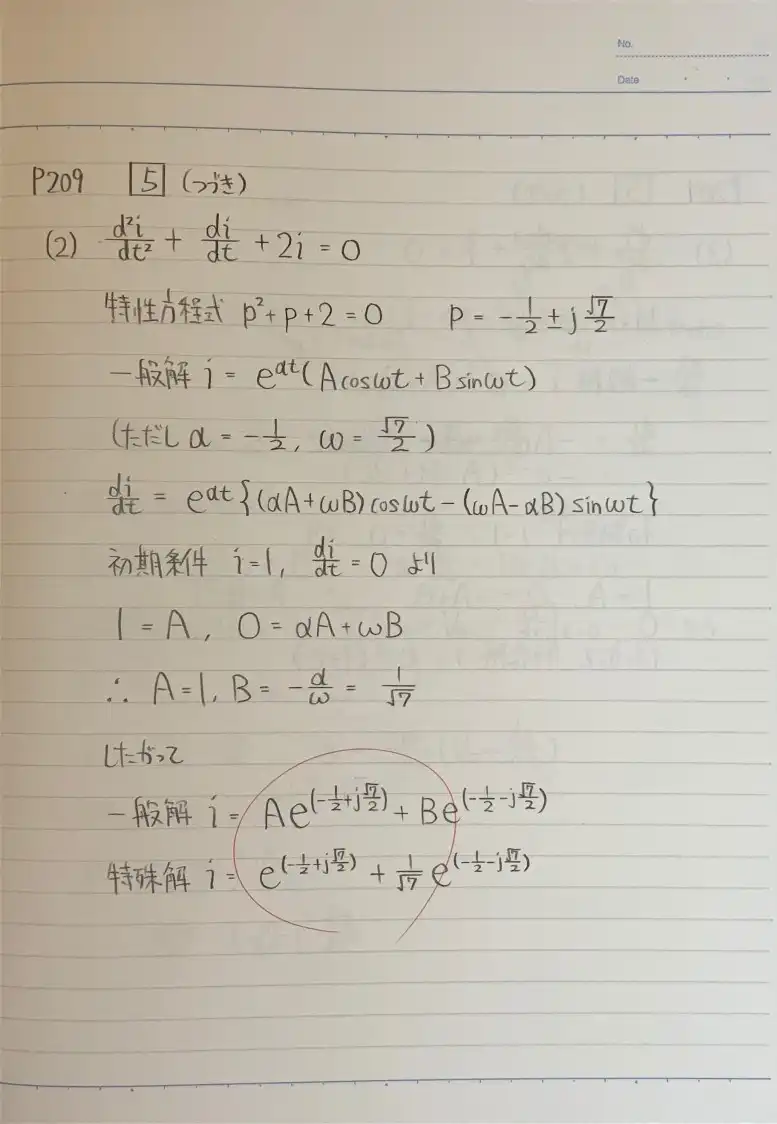 No.
Date
P209 5 (つづき)
(2) d²i/dt² + di/dt + 2i = 0
特性方程式 p²+p+2=0 p = -1/2 ± j √7/2
一般解 i = e^{αt}(A cosωt + B sinωt)
(ただし α = -1/2, ω = √7/2)
di/dt = e^{αt}{(αA+ωB)cosωt-(ωA-αB)sinωt}
初期条件 i=1, di/dt = 0 より
1 = A, 0 = αA+ωB
∴ A=1, B = -α/ω = 1/√7
したがって
一般解 i = Ae^{(-1/2+j√7/2)} + Be^{(-1/2-j√7/2)}
特殊解 i = e^{(-1/2+j√7/2)} + 1/√7 e^{(-1/2-j√7/2)}